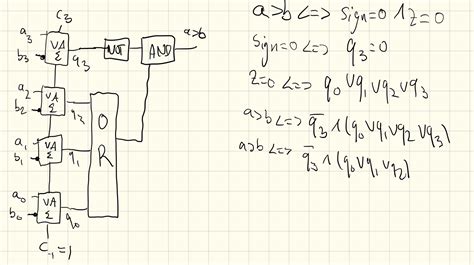 C₃
a₃
b₃
VA
Σ
q₃
NOT
AND
a>b
a₂
b₂
VA
Σ
q₂
a₁
b₁
VA
Σ
q₁
OR
a₀
b₀
VA
Σ
q₀
C₋₁=1
a>b <=> sign=0 ∧ z=0
sign=0 <=> q₃=0
z=0 <=> q₀ ∨ q₁ ∨ q₂ ∨ q₃
a>b <=> q̅₃ ∧ (q₀ ∨ q₁ ∨ q₂ ∨ q₃)
a>b <=> q̅₃ ∧ (q₀ ∨ q₁ ∨ q₂)